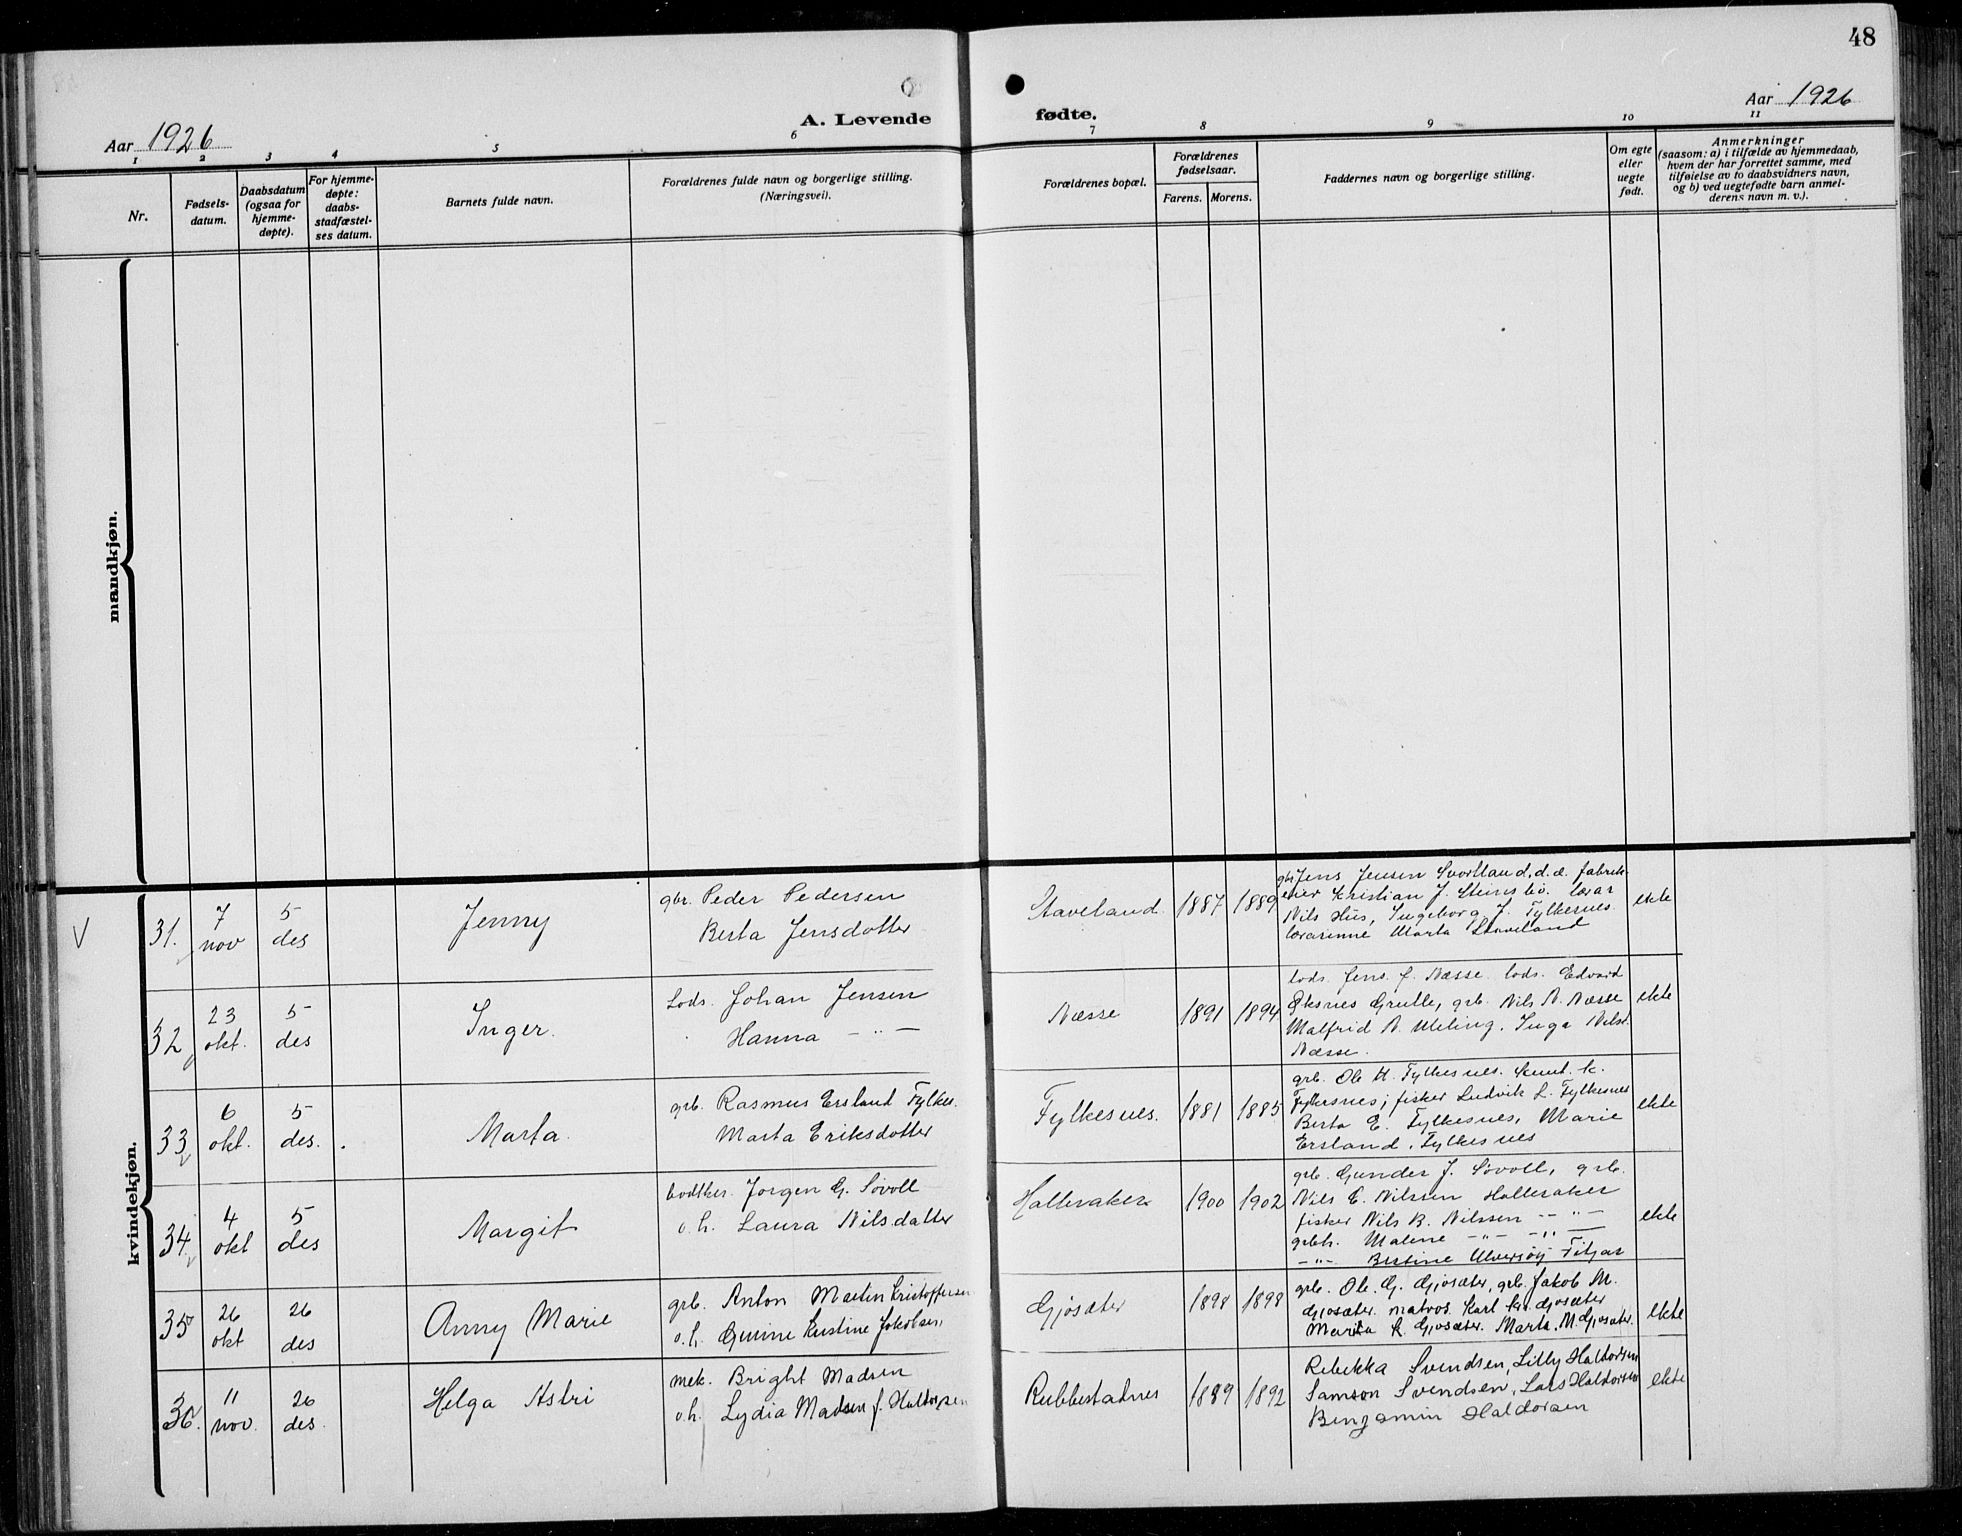 48
Aar 1926
A. Levende
fødte.
Aar 1926
1 2 3 4 5 6 7 8 9 10 11
Nr.
Fødsels-
datum.
Daabsdatum
(ogsaa for
hjemme-
døpte).
For hjemme-
døpte:
daabs-
stadfæstel-
ses datum.
Barnets fulde navn.
Forældrenes fulde navn og borgerlige stilling.
(Næringsvei).
Forældrenes bopæl.
Forældrenes
fødselsaar.
Farens. Morens.
Faddernes navn og borgerlige stilling.
Om egte
eller
uegte
født.
Anmerkninger
(saasom: a) i tilfælde av hjemmedaab,
hvem der har forrettet samme, med
tilføielse av to daabsvidners navn,
og b) ved uegtefødte barn anmel-
derens navn m. v.).
mandkjøn.
kvindekjøn.
V
31.
7
nov
5
des
Jenny
gbr. Peder Pedersen
Berta Jensdotter
Staveland
1887
1889
gbr Jens Jensen Svortland, d.d. fabrik-
eier Kristian J. Steinsbø. lærar
Nils Hus, Ingeborg J. Fylkesnes
lærarinne Marta Staveland
ekte
32
23
okt.
5
des
Inger.
Lods. Johan Jensen
Hanna — " —
Næsse
1891
1894
lods. Jens J. Næsse lods. Edvard
Øksnes Grulle, grb. Nils N. Næsse
Malfrid N. Uleling. Inga Nilsd.
Næsse.
ekte
33
6
okt.
5
des.
Marta.
grb. Rasmus Ersland Fylkes.
Marta Eriksdotter
Fylkesnes.
1881
1885
grb. Ole H. Fylkesnes. Knut K.
Fylkesnes; fisker Ludvik L. Fylkesnes
Berta E. Fylkesnes, Marie
Ersland, Fylkesnes
ekte
34
4
okt
5
des
Margit
Jorgen G. Søvoll
o. h. Laura Nilsdatter
Halleraker
1900
1902
grb. Gunder J. Søvoll, grb.
Nils E. Nilssen Halleraker
fisker Nils B. Nilssen — " —
grbh. Malene — " — — " —
— " — Bertine Ulversøy Fitjar
ekte
35
26
okt
26
des
Anny Marie
grb. Anton Martin Kristoffersen
o. h. Gurine Kristine Jakobsen
Gjøsæter
1898
1898
grb. Ole G. Gjøsæter, grb. Jakob M.
Gjøsæter. matros. Karl Kr. Gjøsæter
Marita K. Gjøsæter. Marta. M. Gjøsæter.
ekte
36.
11
nov.
26
des.
Helga Astri
mek. Bright Madsen
o. h. Lydia Madsen f. Haldorsen
Rubbestadnes
1889
1892
Rebekka Svendsen, Lilly Haldorsen
Samson Svendsen, Lars Haldorsen
Benjamin Haldorsen
ekte